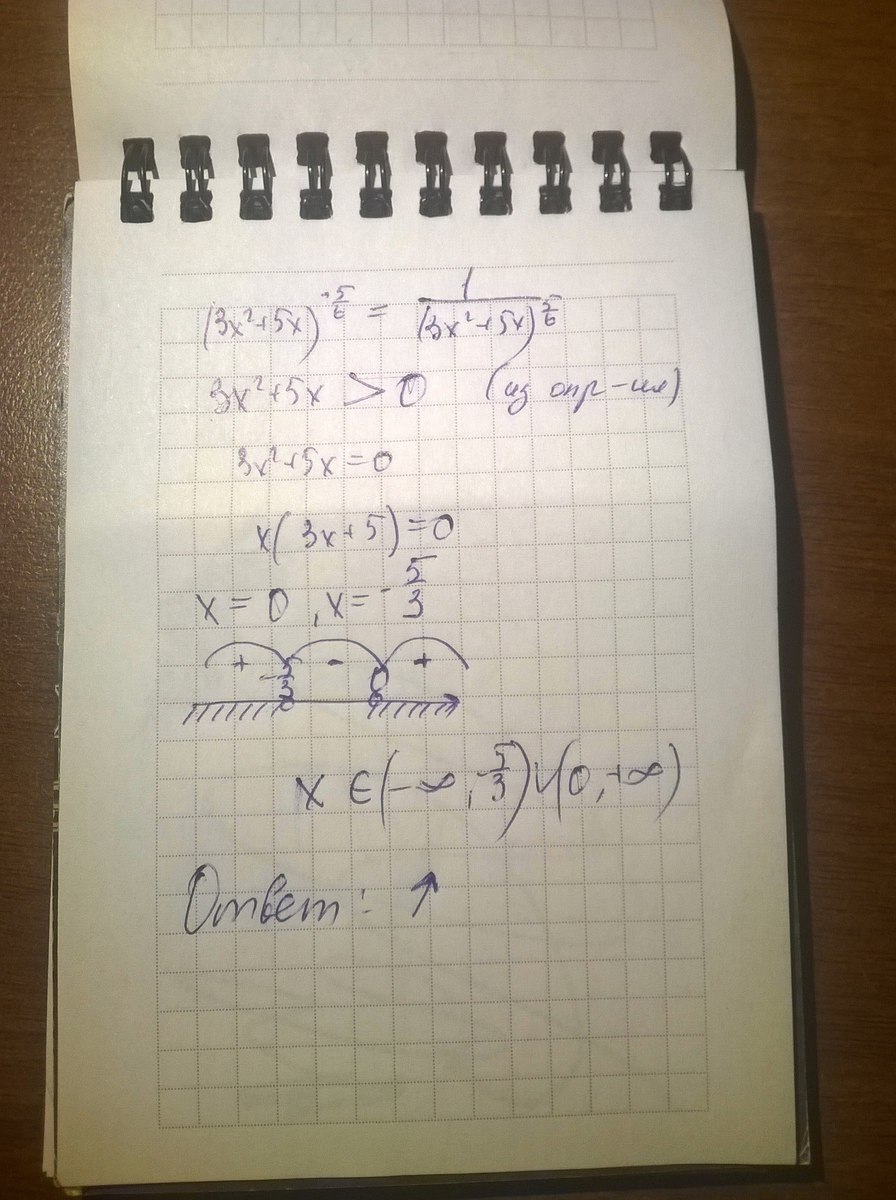 (3x²+5x)^(-5/6) = 1/(3x²+5x)^(5/6)
3x²+5x > 0 (из опр-ия)
3x²+5x=0
x(3x+5)=0
x=0, x=-5/3
+ - +
-5/3 0
x ∈(-∞, -5/3)∪(0,+∞)
Ответ: ↑